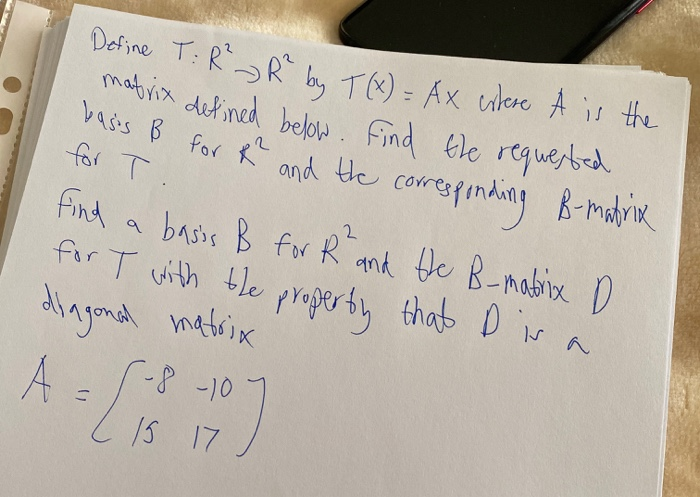 Define T: R² → R² by T(x) = Ax where A is the
matrix defined below. Find the requested
basis B for R² and the corresponding B-matrix
for T.
Find a basis B for R² and the B-matrix D
for T with the property that D is a
diagonal matrix
A = [-8 -10
15 17]